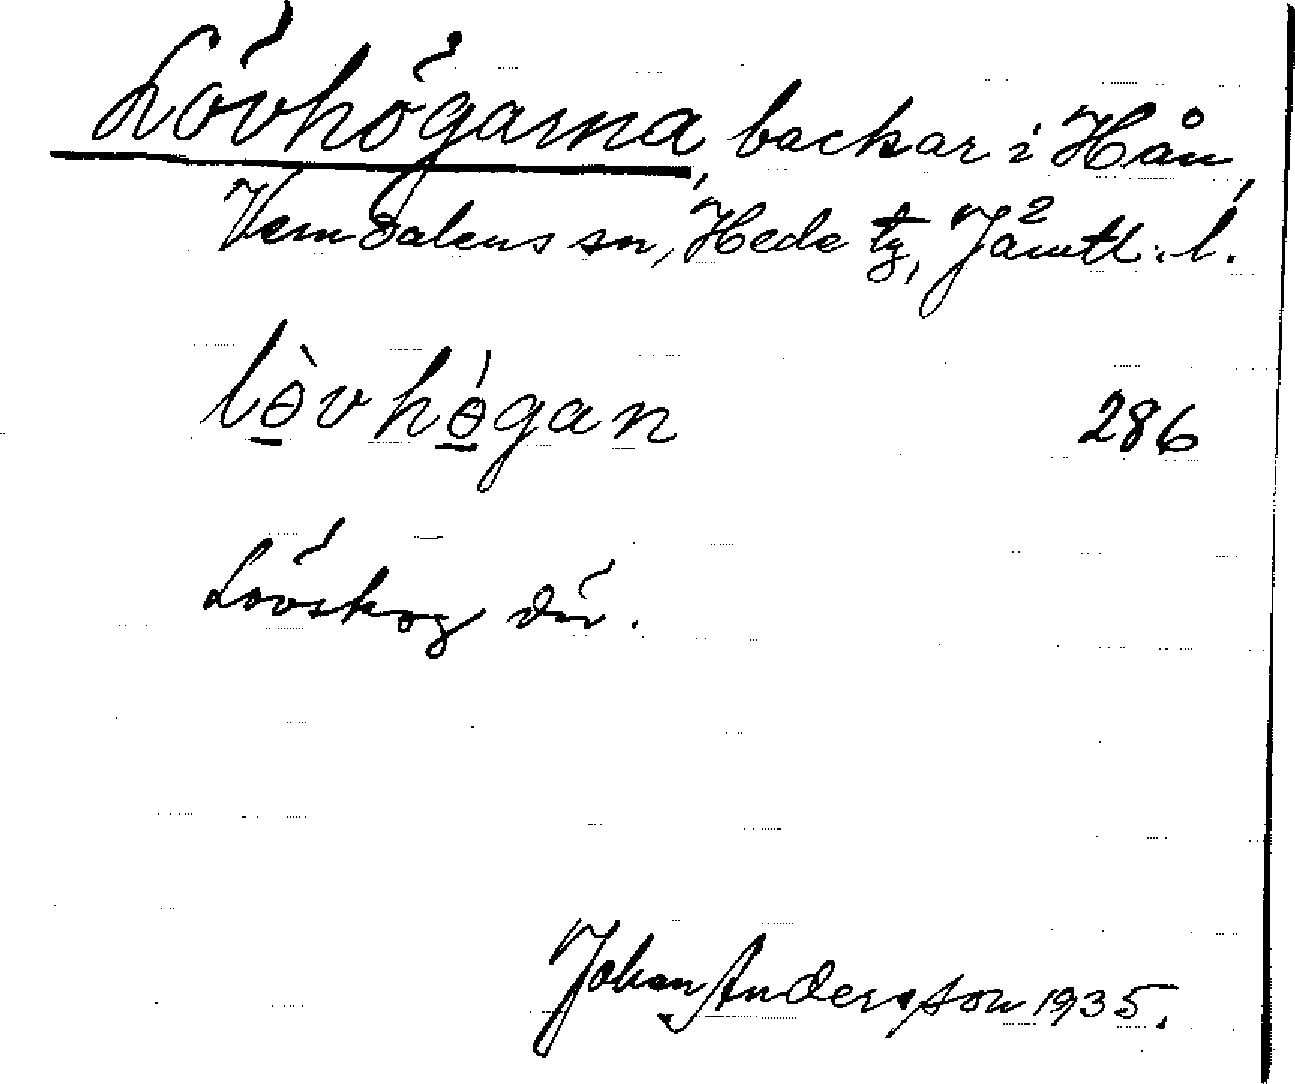 Lövhögarna, backar i Hån,
Vemdalens sn, Hede tg, Jämtl. l.
lɵ̀vhɵ́gan 286
Lövskog där.
Johan Andersson 1935.